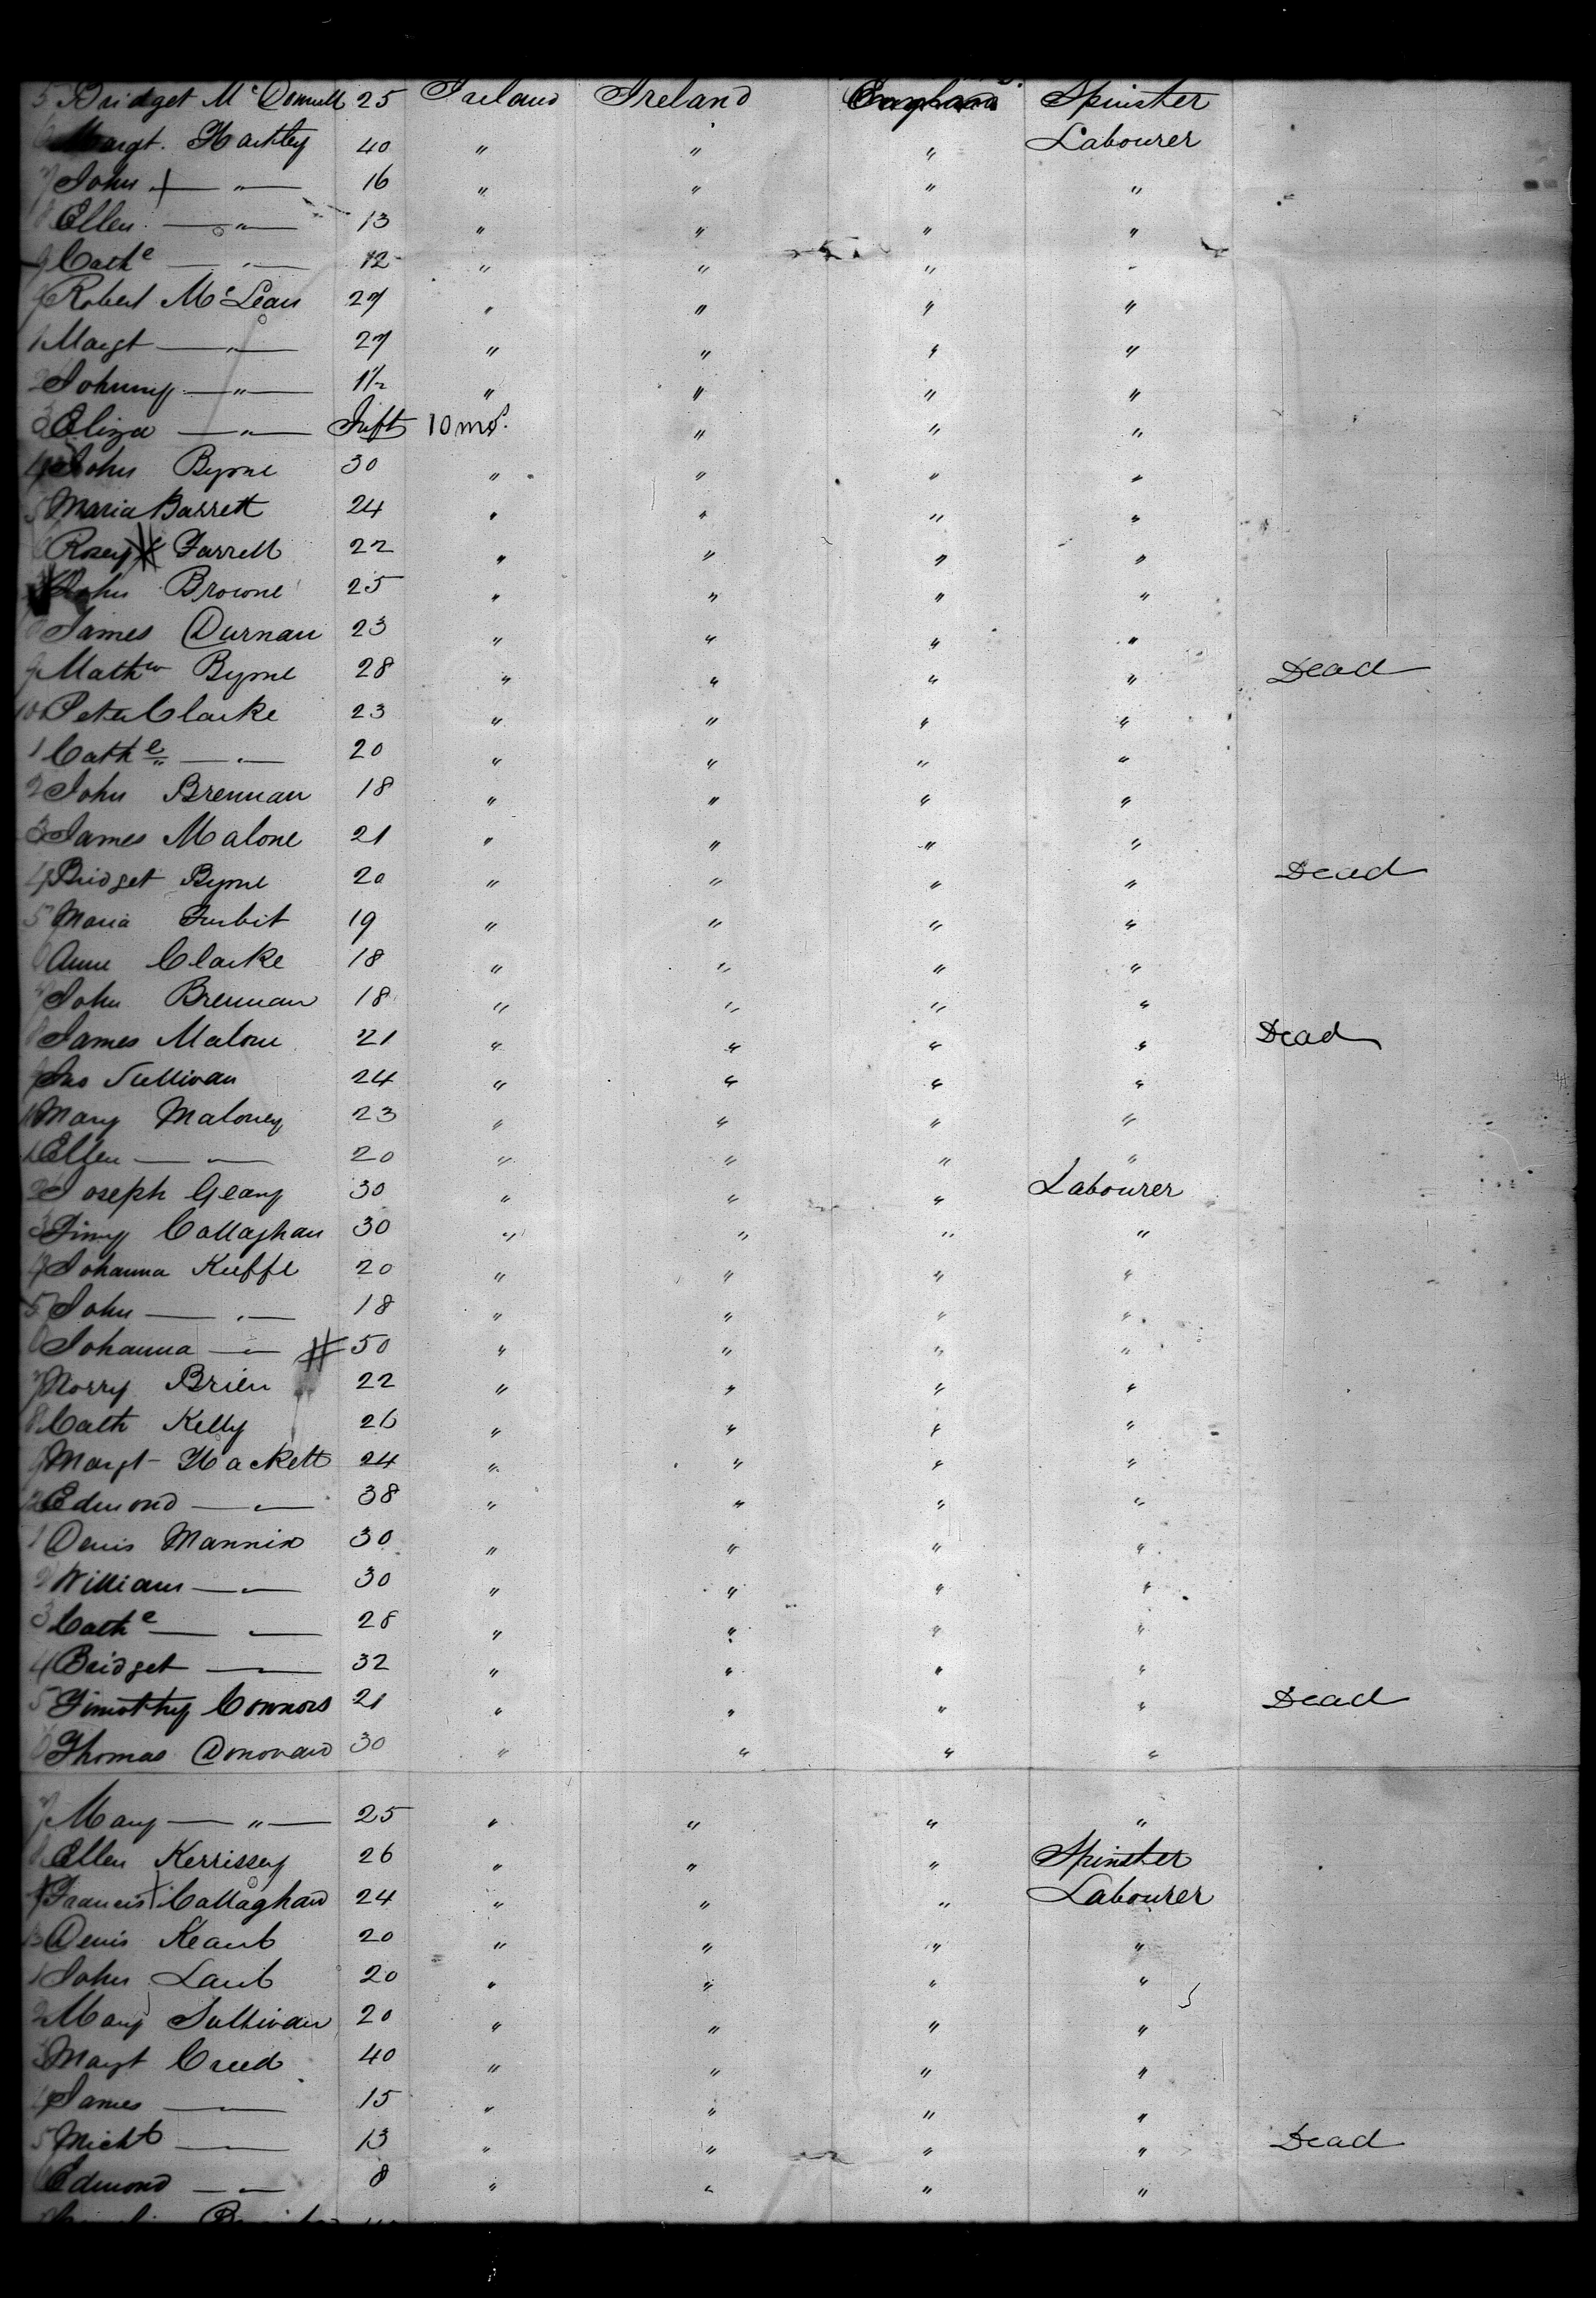 5 Bridget McDonnell 25 Ireland Ireland Spinster
6 Margt. Hartley 40 " " " Labourer
7 John — " — 16 " " " "
8 Ellen — " — 13 " " " "
9 Cathe — " — 12 " " " "
Robert McLean 27 " " " "
1 Margt — " — 27 " " " "
2 Johnny — " — 1½ " " " "
3 Eliza — " — Inft 10 mos. " " "
4 John Byrne 30 " " " "
5 Maria Barrett 24 " " " "
6 Rosey Farrell 22 " " " "
John Browne 25 " " " "
8 James Durnan 23 " " " "
9 Mathw Byrne 28 " " " " Dead
10 Peter Clarke 23 " " " "
1 Cathe — " — 20 " " " "
2 John Brennan 18 " " " "
3 James Malone 21 " " " "
4 Bridget Byrne 20 " " " " Dead
5 Maria 19 " " " "
6 Anne Clarke 18 " " " "
7 John Brennan 18 " " " "
8 James Malone 21 " " " " Dead
9 Jno Sullivan 24 " " " "
Mary Maloney 23 " " " "
1 Ellen — " — 20 " " " "
2 Joseph Geany 30 " " " Labourer
3 Timy Callaghan 30 " " " "
4 Johanna Kieffe 20 " " " "
5 John — " — 18 " " " "
6 Johanna — " — # 50 " " " "
7 Norry Brien 22 " " " "
8 Cath Kelly 26 " " " "
9 Margt Hackett 24 " " " "
Edmond — " — 38 " " " "
1 Denis Mannix 30 " " " "
2 William — " — 30 " " " "
3 Cathe — " — 28 " " " "
4 Bridget — " — 32 " " " "
5 Timothy Connors 21 " " " " Dead
6 Thomas Donovan 30 " " " "
7 Mary — " — 25 " " " "
8 Ellen Kerrissey 26 " " " Spinster
Francis Callaghan 24 " " " Labourer
Denis 20 " " " "
1 John 20 " " " "
2 Mary Sullivan 20 " " " "
3 Margt Creed 40 " " " "
4 James — " — 15 " " " "
5 Michl — " — 13 " " " " Dead
6 Edmond — " — 8 " " " "